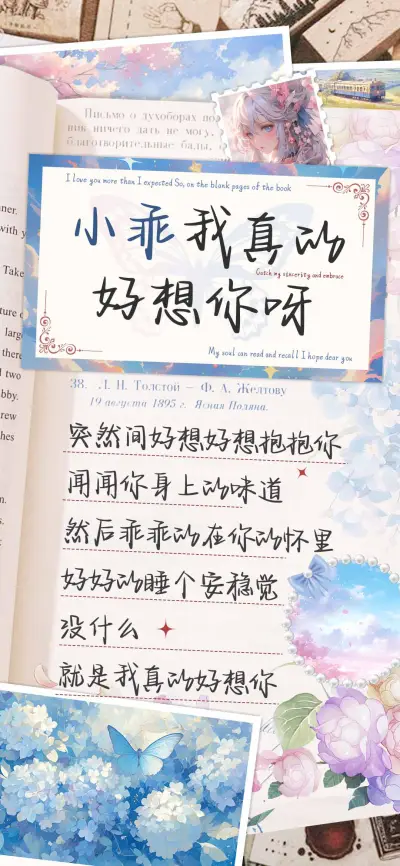 Письмо о духоборах по
ник ничего дать не могу,
благотворительные балы,
I love you more than I expected So, on the blank pages of the book
小乖我真的
Catch my sincerity and embrace
好想你呀
My soul can read and recall I hope dear you
38. Л. Н. Толстой — Ф. А. Желтову
19 августа 1895 г. Ясная Поляна.
突然间好想好想抱抱你
闻闻你身上的味道
然后乖乖的在你的怀里
好好的睡个安稳觉
没什么
就是我真的好想你
with y
Take
there